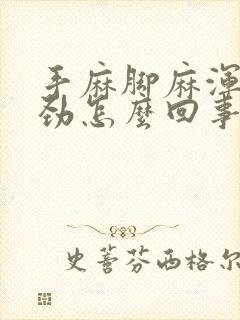 手麻脚麻渾
劲怎麼回事
史蒈芬西格尔